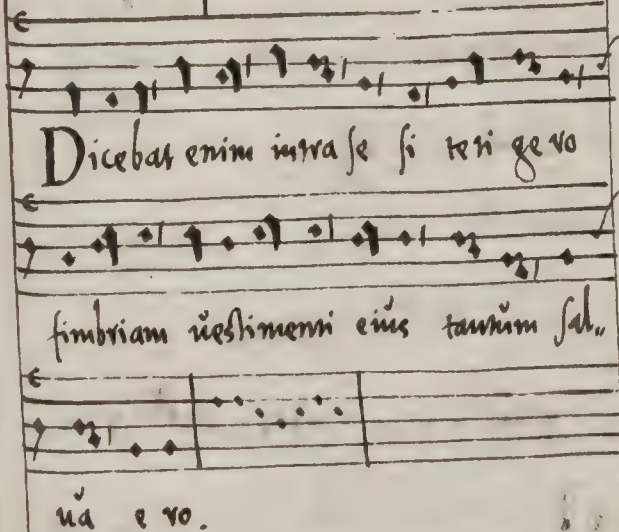 Dicebat enim intra se si teti ge ro
fimbriam vestimenti eiŭs tantŭm sal„
ŭa e ro.